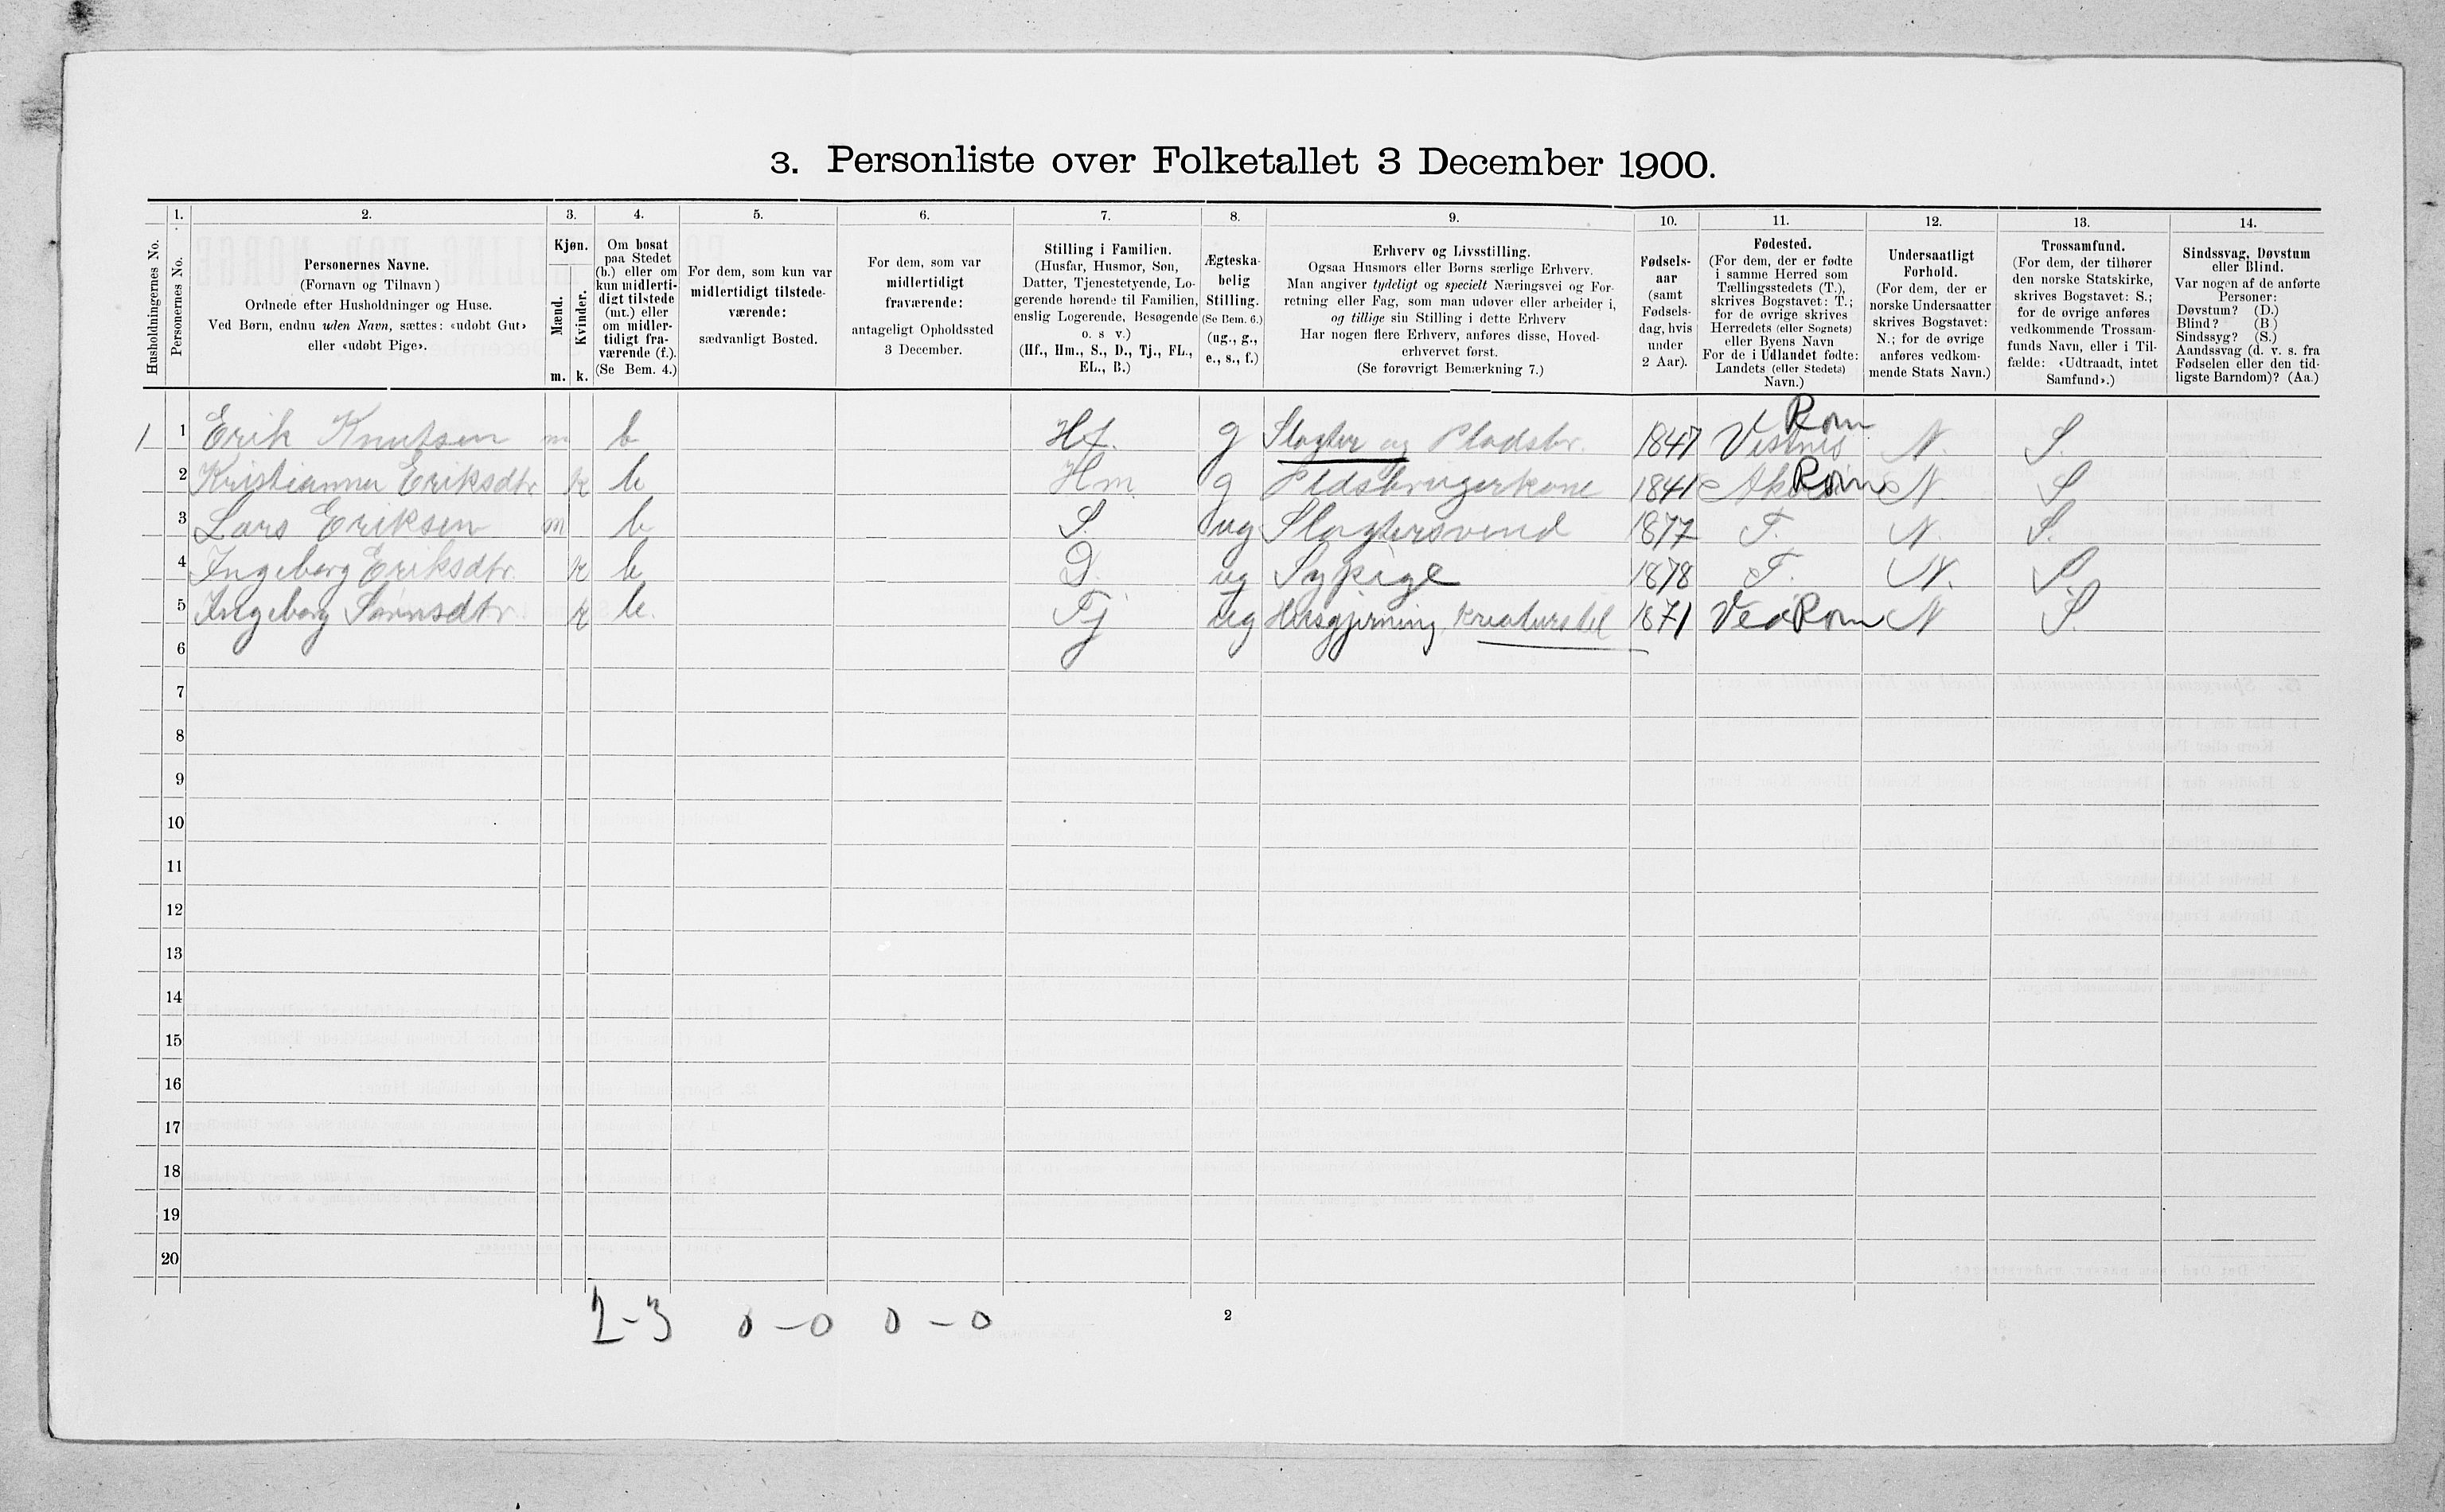 3. Personliste over Folketallet 3 December 1900.
Husholdningernes No.
1.
Personernes No.
2.
Personernes Navne.
(Fornavn og Tilnavn)
Ordnede efter Husholdninger og Huse.
Ved Børn, endnu uden Navn, sættes: «udøbt Gut»
eller «udøbt Pige».
3.
Kjøn.
Mænd.
Kvinder.
m. k.
4.
Om bosat
paa Stedet
(b.) eller om
kun midlerti-
digt tilstede
(mt.) eller
om midler-
tidigt fra-
værende (f.).
(Se Bem. 4.)
5.
For dem, som kun var
midlertidigt tilstede-
værende:
sædvanligt Bosted.
6.
For dem, som var
midlertidigt
fraværende:
antageligt Opholdssted
3 December.
7.
Stilling i Familien.
(Husfar, Husmor, Søn,
Datter, Tjenestetyende, Lo-
gerende hørende til Familien,
enslig Logerende, Besøgende
o. s v.)
(Hf., Hm., S., D., Tj., FL.,
EL., B.)
8.
Ægteska-
belig
Stilling.
(Se Bem. 6.)
(ug., g.,
e., s., f.)
9.
Erhverv og Livsstilling.
Ogsaa Husmors eller Børns særlige Erhverv.
Man angiver tydeligt og specielt Næringsvei og For-
retning eller Fag, som man udøver eller arbeider i,
og tillige sin Stilling i dette Erhverv
Har nogen flere Erhverv, anføres disse, Hoved-
erhvervet først.
(Se forøvrigt Bemærkning 7.)
10.
Fødsels-
aar
(samt
Fødsels-
dag, hvis
under
2 Aar).
11.
Fødested.
(For dem, der er fødte
i samme Herred som
Tællingsstedets (T.),
skrives Bogstavet: T.;
for de øvrige skrives
Herredets (eller Sognets)
eller Byens Navn
For de i Udlandet fødte:
Landets (eller Stedets)
Navn.)
12.
Undersaatligt
Forhold.
(For dem, der er
norske Undersaatter
skrives Bogstavet:
N.; for de øvrige
anføres vedkom-
mende Stats Navn.)
13.
Trossamfund.
(For dem, der tilhører
den norske Statskirke,
skrives Bogstavet: S.;
for de øvrige anføres
vedkommende Trossam-
funds Navn, eller i Til-
fælde: «Udtraadt, intet
Samfund».)
14.
Sindssvag, Døvstum
eller Blind.
Var nogen af de anførte
Personer:
Døvstum? (D.)
Blind? (B)
Sindssyg? (S.)
Aandssvag (d. v. s. fra
Fødselen eller den tid-
ligste Barndom)? (Aa.)
1 1 Erik Knutsen m b Hf. g Slagter og Pladsbr. 1847 Vestnes Rom N. S.
2 Kristianna Eriksdtr k b Hm g Pldsbrugerkone 1841 Rom N. S
3 Lars Eriksen m b S. ug Slagtersvend 1877 T. N. S.
4 Ingeborg Eriksdtr. k b D. ug Sypige 1878 T. N. S
5 Ingeborg k b. Tj ug Husgjerning Kreaturstel 1871 Rom N S.
6
7
8
9
10
11
12
13
14
15
16
17
18
19
20
2-3 0-0 0-0
2